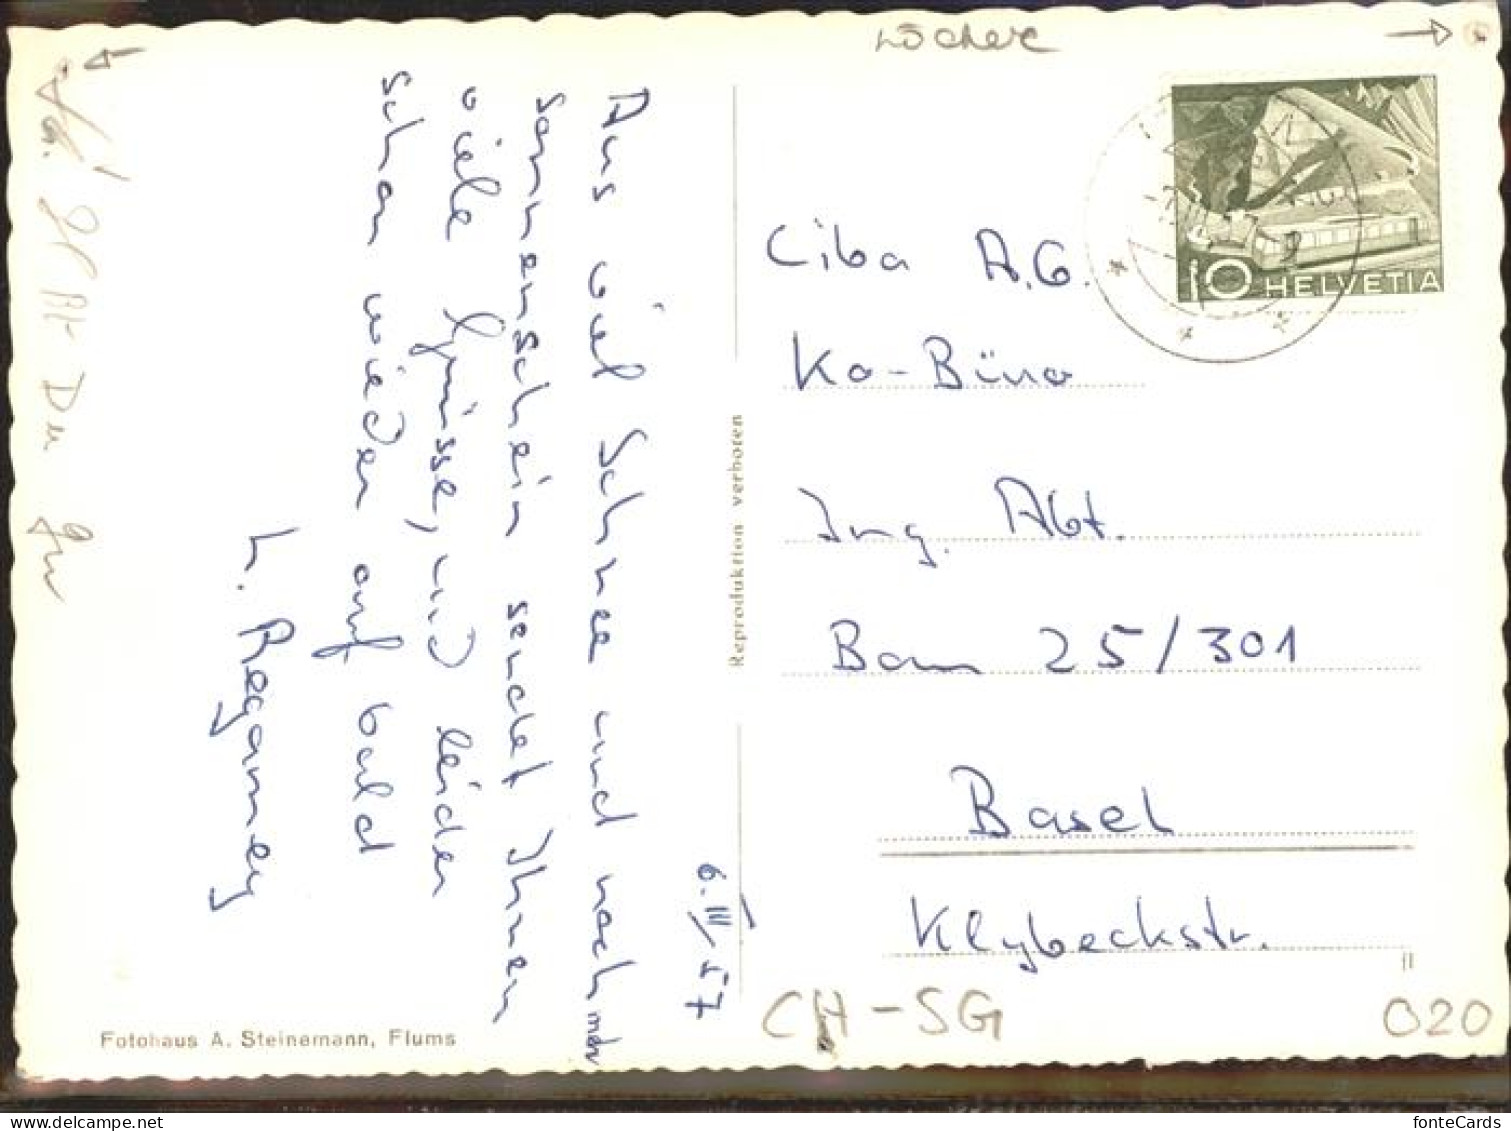 Löcher
10 HELVETIA
6. III 57
Aus viel Schnee und noch mehr
Sonnenschein sendet Ihnen
viele Grüsse, und leider
schon wieder auf bald
L. Regamey
Ciba A.G.
Ko-Büro
Ing. Abt.
Bau 25/301
Basel
Klybeckstr.
Reproduktion verboten
Fotohaus A. Steinemann, Flums
CH-SG
020
fonteCards